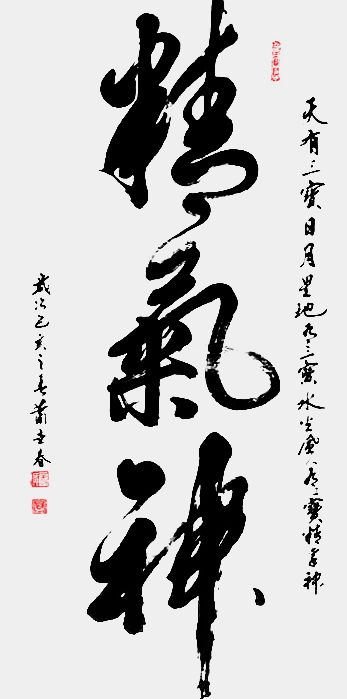 天有三寶日月星地有三寶水火風人有三寶精氣神
精氣神
歲次己亥之春蕭
春